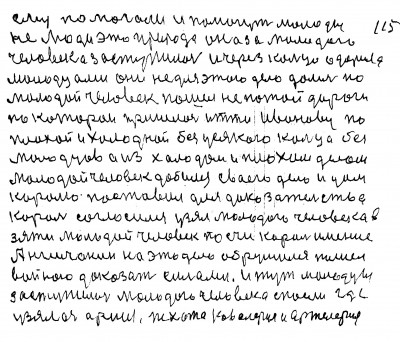 ему помогали и помогут молодцы 115
не люди это природа оказа молодого
человека заступилися и через кольцо одарила
молодцами они не для этого дело дались но
молодой человек пошел не по той дороги
по которой пришлося итти Иванову по
плохой и холодной без всякого кольца без
молодцов а из холодом и плохим делом
молодой человек добился своего дело и дом
королю поставил для доказательства
Король согласился узял молодого человека в
зяти молодой человек почти Король имение
Англичанки на это дело обрушился пошел
войною доказат силами. и тут молодцы
заступилися молодого человека споели где
узялася армия, пехота Ковалерия и Артелерия